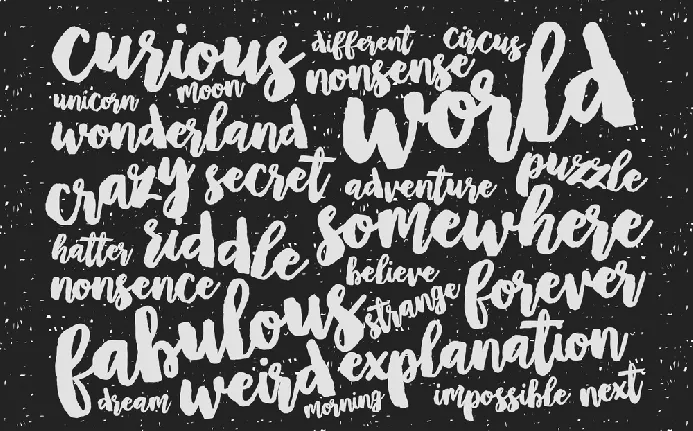 curious different circus
unicorn moon nonsense world
wonderland
crazy secret adventure puzzle
hatter riddle somewhere
nonsence believe forever
fabulous strange
dream weird explanation
morning impossible next